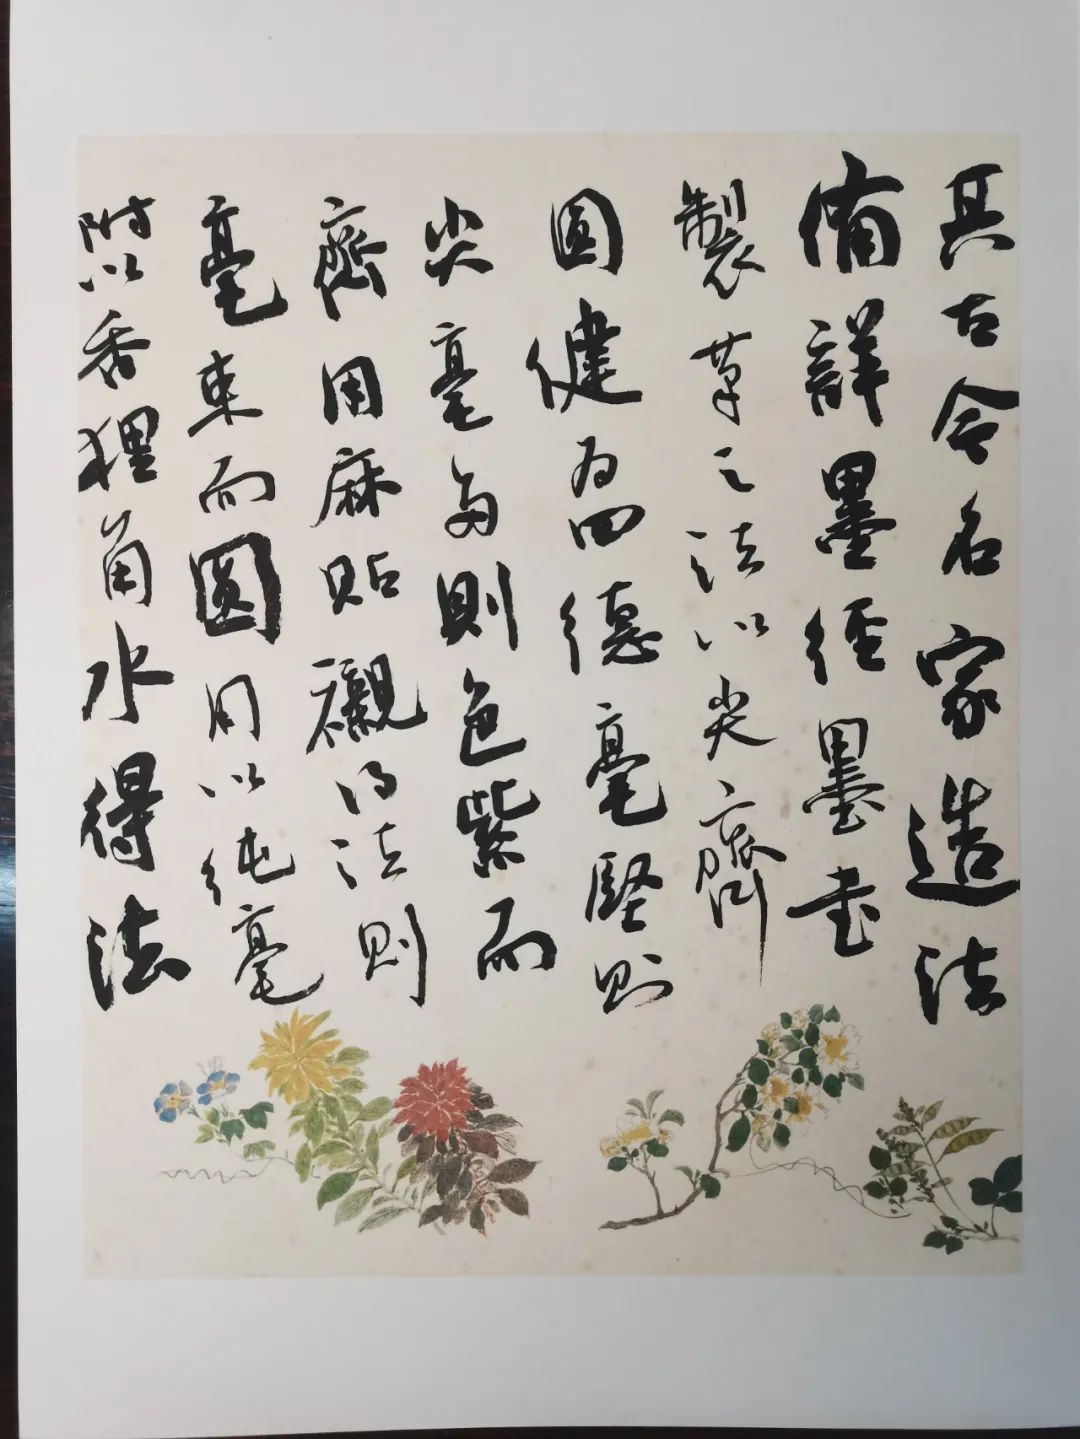 其古今名家造法
備詳墨經墨書
製筆之法以尖齊
圓健為四德毫堅則
尖毫多則色紫而
齊用麻貼襯得法則
毫束而圓用以純毫
附以香狸角水得法